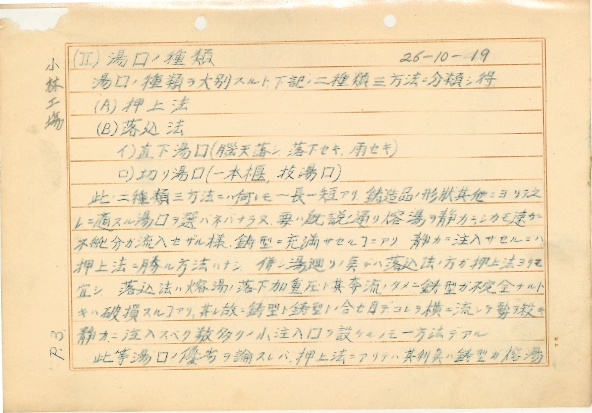 小林工場
(II) 湯口ノ種類 26-10-19
湯口ノ種類ヲ大別スルト下記ノ二種類三方法ニ分類シ得
(A) 押上法
(B) 落込法
イ) 直下湯口(脳天落シ 落下セキ、雨セキ)
ロ) 切リ湯口(一本榧、枝湯口)
此ノ二種類三方法ニハ何レモ一長一短アリ 鋳造品ノ形状其他ニヨリ之
レニ適スル湯口ヲ選バネバナラヌ 要ハ既説ノ通リ熔湯ヲ静カニシカモ速カニ
不純分ガ流入セザル様、鋳型ニ充満サセルコニアリ 静カニ注入サセルニハ
押上法ニ勝ル方法ハナシ、併シ湯廻リノ点デハ落込法ノ方ガ押上法ヨリモ
宜シ 落込法ハ熔湯ノ落下加重圧ト其奔流ノタメニ鋳型ガ不完全ナルト
キハ破損スルコアリ、其レ故ニ鋳型ト鋳型ノ合セ目デコレヲ横ニ流シテ勢ヲ殺キ
静カニ注入スベク数多クノ小注入口ヲ設ケルノモ一方法デアル
此等湯口ノ優劣ヲ論スレバ、押上法ニアリテハ其利点ハ鋳型ガ熔湯
P.3.